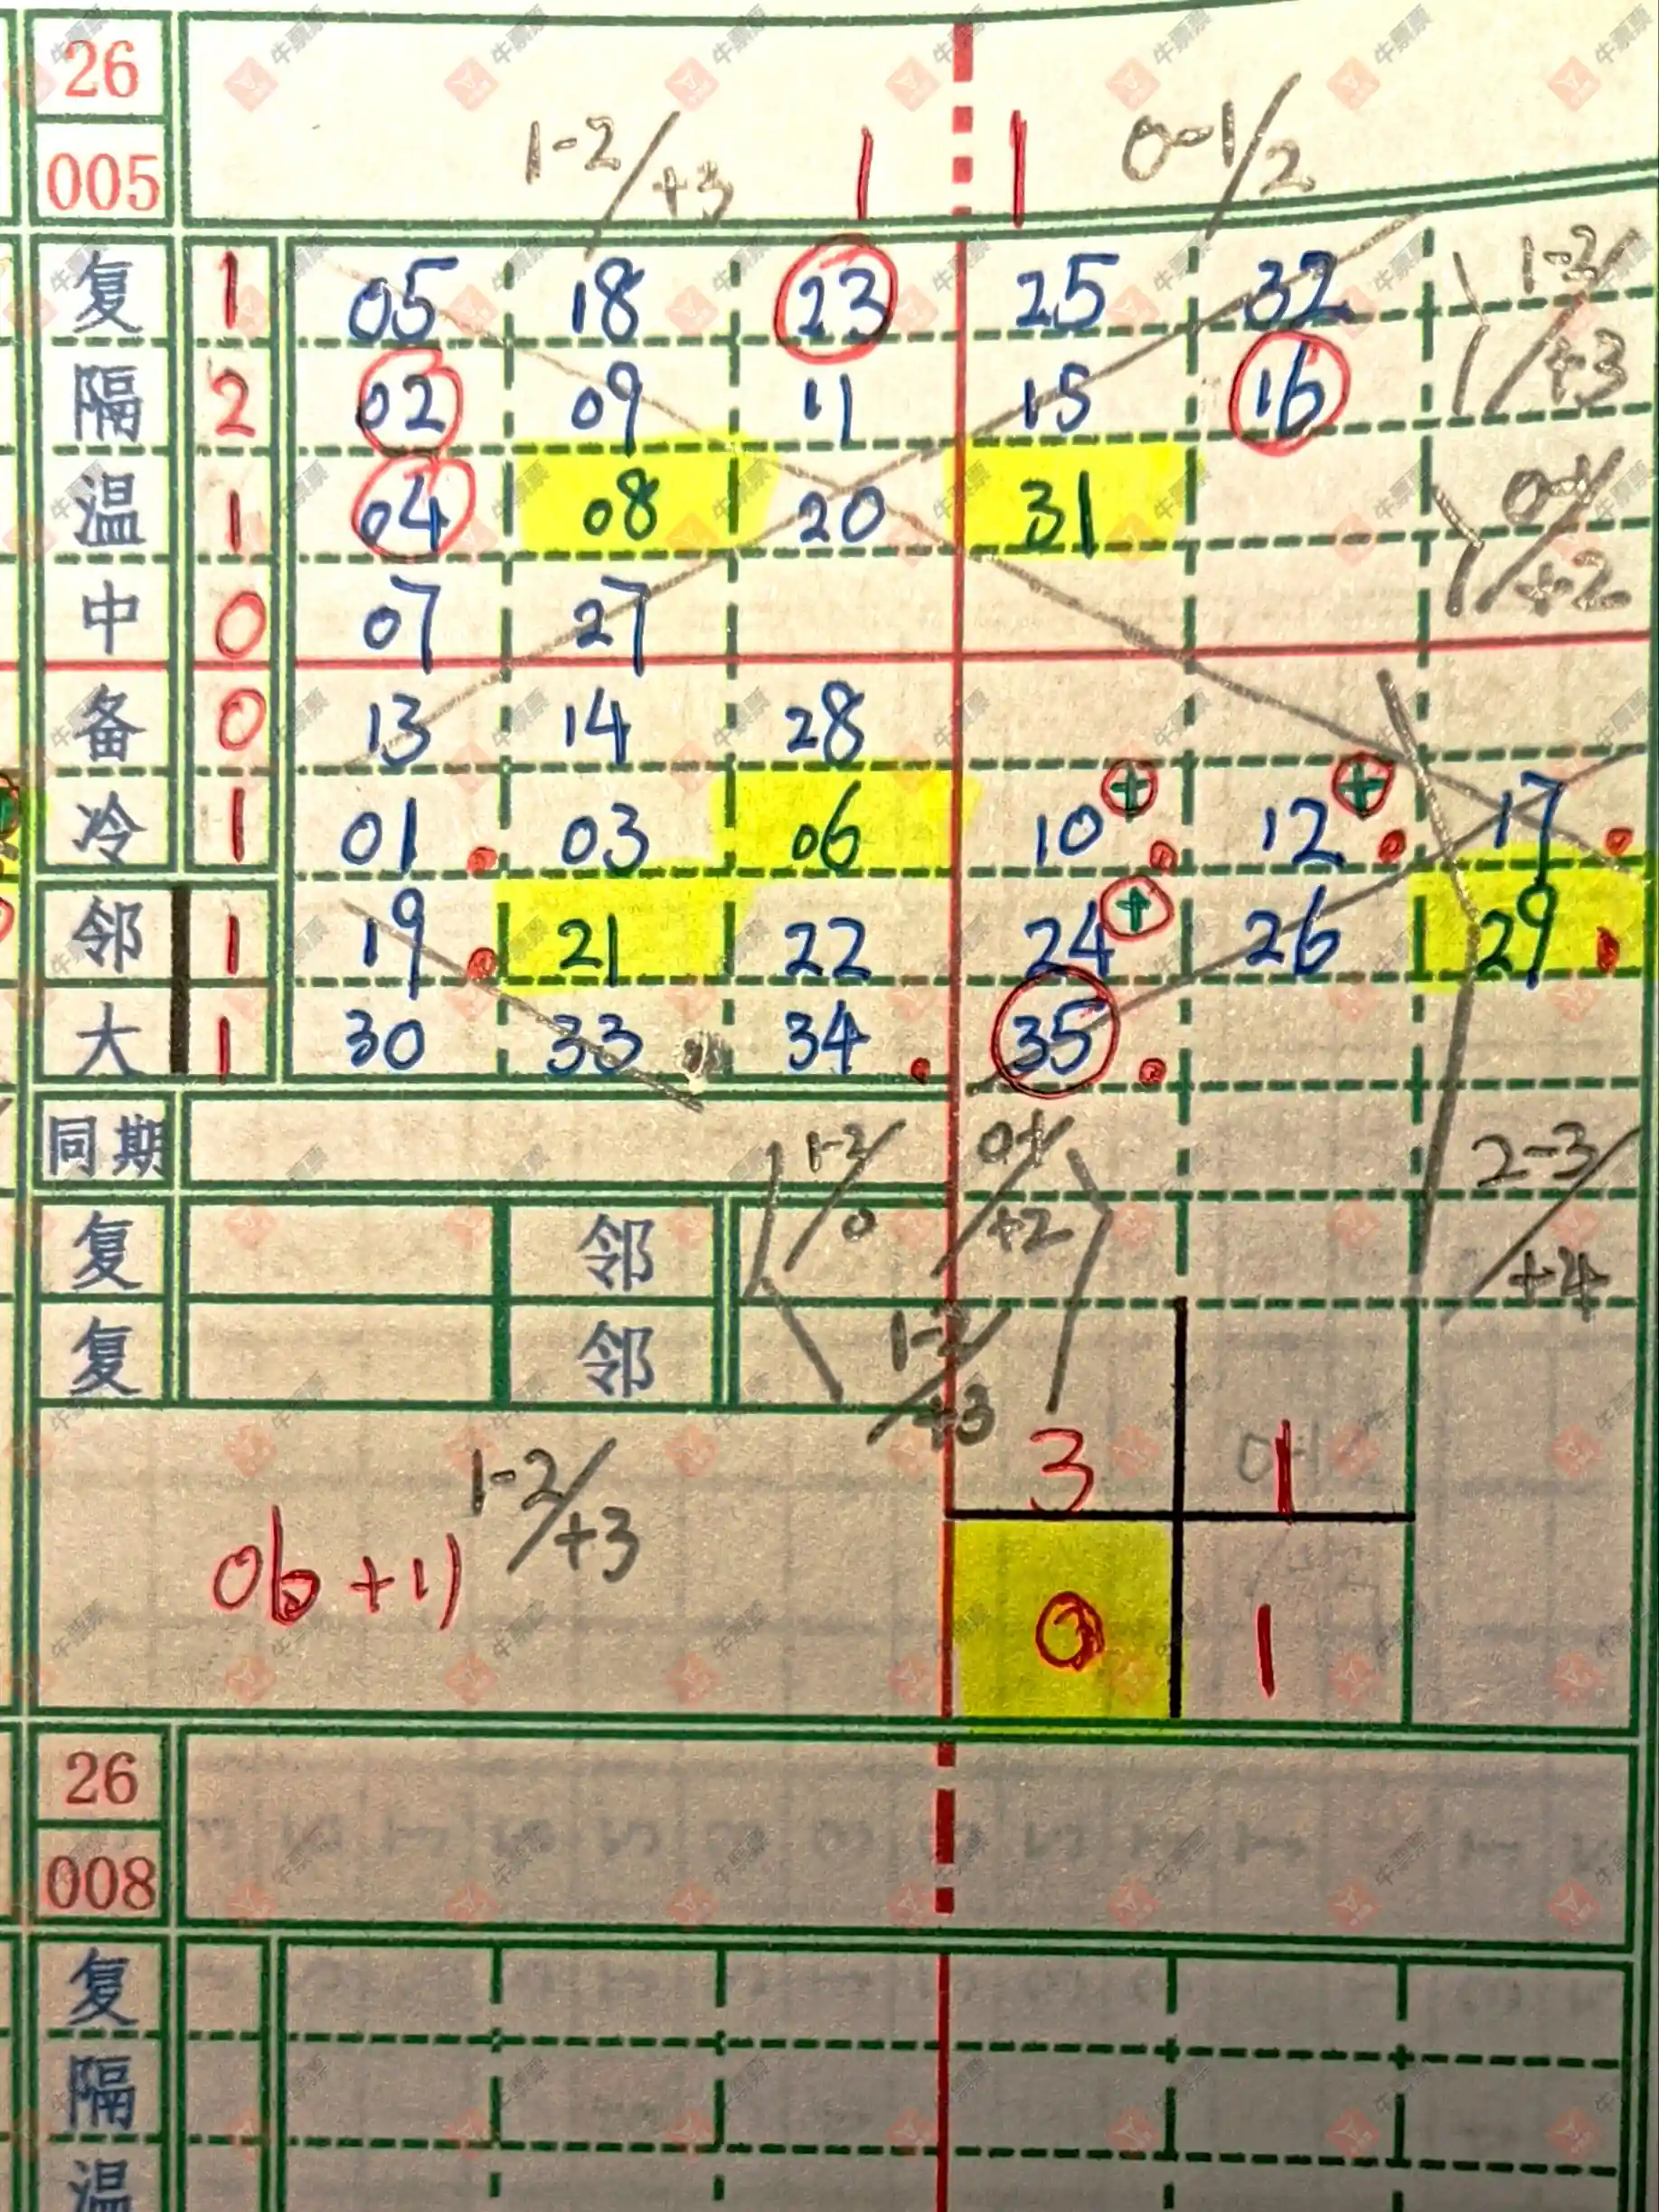 26
1-2/+3 1 1 0-1/2
005
复 1 05 18 23 25 32 1-2/+3
隔 2 02 09 11 15 16
温 1 04 08 20 31 0-1/+2
中 0 07 27
备 0 13 14 28
冷 1 01 03 06 10+ 12+ 17
邻 1 19 21 22 24+ 26 29
大 1 30 33 34 35
同期 0-1/+2 2-3/+4
复 邻
复 邻 1-2/+3
3 1
1-2/+3
06+11
0 1
26
008
复
隔
温
牛票票